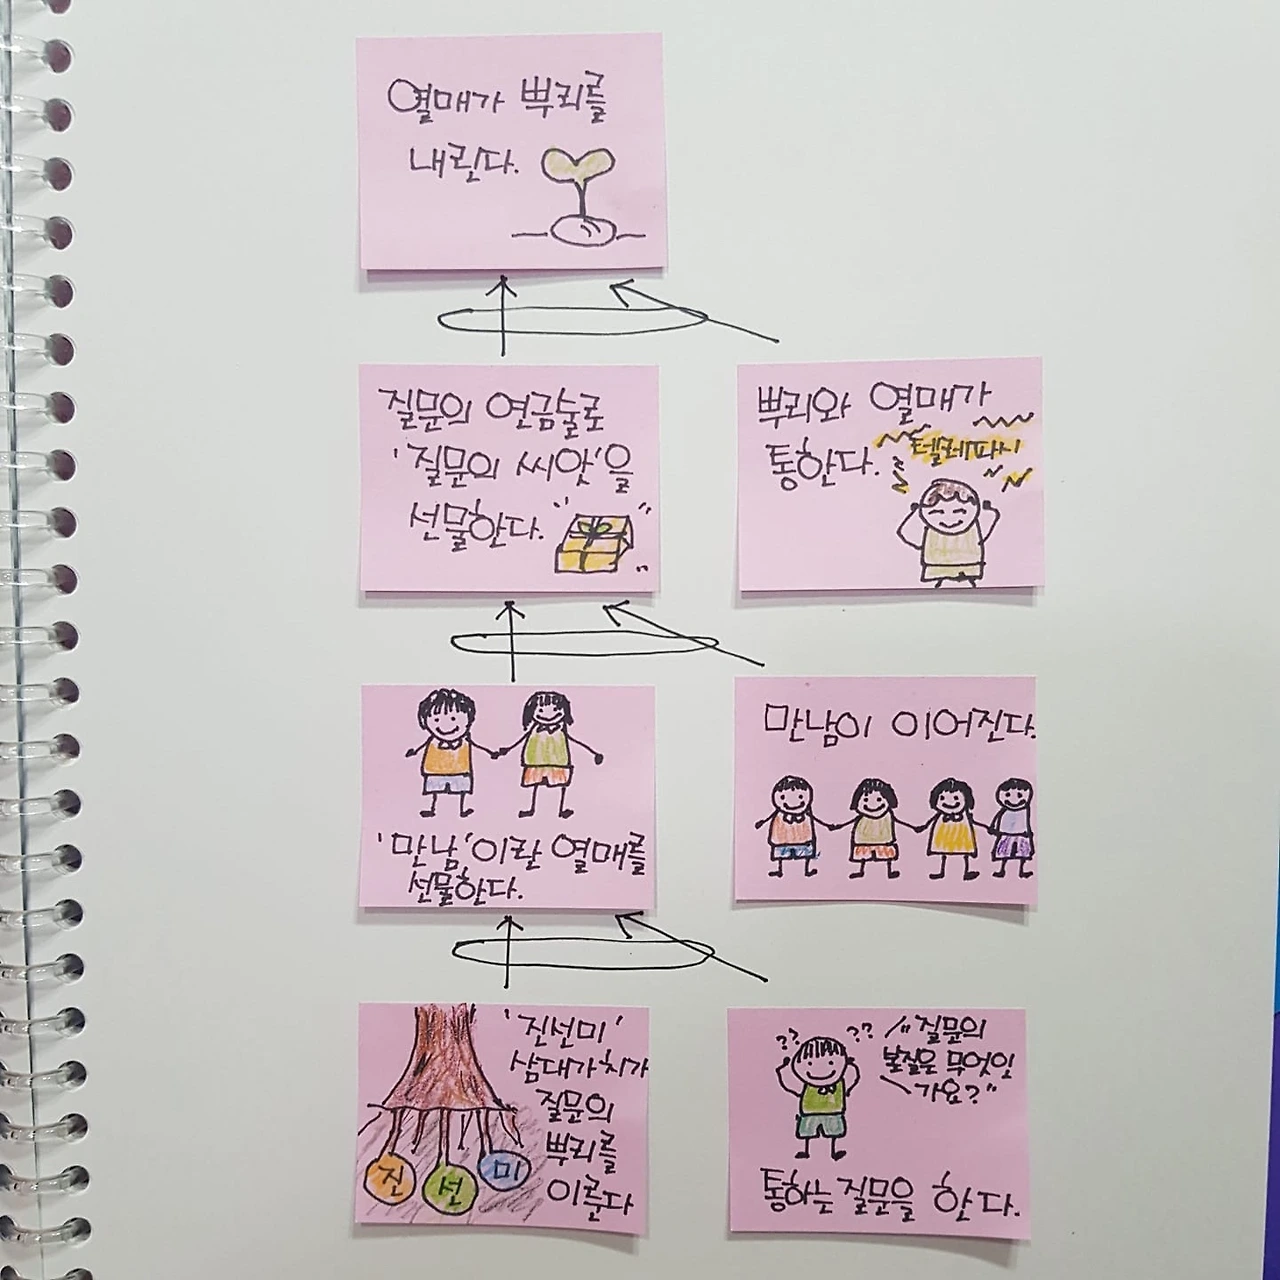 열매가 뿌리를
내린다.
질문의 연금술로
'질문의 씨앗'을
선물한다.
뿌리와 열매가
통한다.
텔레파시
'만남'이란 열매를
선물한다.
만남이 이어진다.
'진선미'
삼대가치가
질문의
뿌리를
이룬다
진
선
미
?? ??
"질문의
본질은 무엇인
가요?"
통하는 질문을 한다.